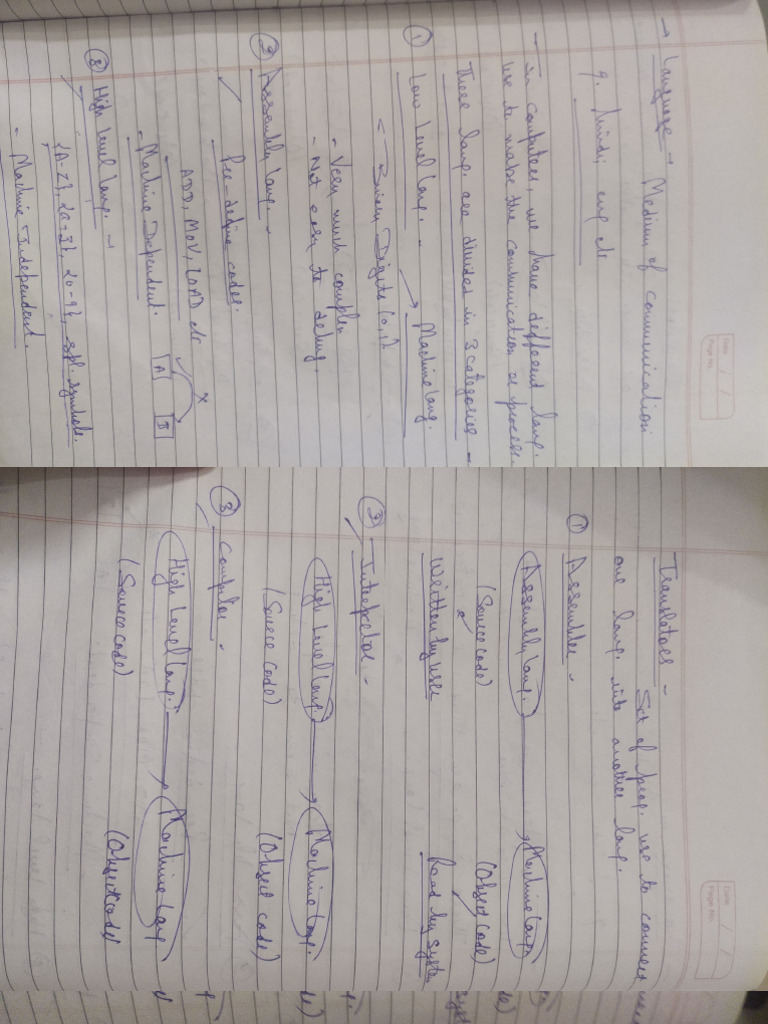 Date / /
Page No.
→ Language → Medium of communication
eg. hindi, eng etc
- In computers, we have different lang.
use to make the communication or process.
These lang. are divided in 3 categories -
① Low Level Lang. - → Machine lang.
< Binary Digits (0,1)
- Very much complex
- Not easy to debug.
② Assembly Lang. -
Pre-define codes.
ADD, MOV, LOAD etc
- Machine Dependent.
A B
③ High Level Lang. -
{A-Z}, {a-z}, {0-9}, spl. symbols.
- Machine Independent.
Date / /
Page No.
Translators -
Set of prog. use to connect
one lang. into another lang.
① Assembler -
Assembly Lang. → Machine Lang.
(Source code) (Object Code)
Written by user Read by system
② Interpretor -
High Level Lang. → Machine Lang.
(Source Code) (Object Code)
③ Compiler -
High Level Lang. → Machine Lang
(Source code) (Object code)